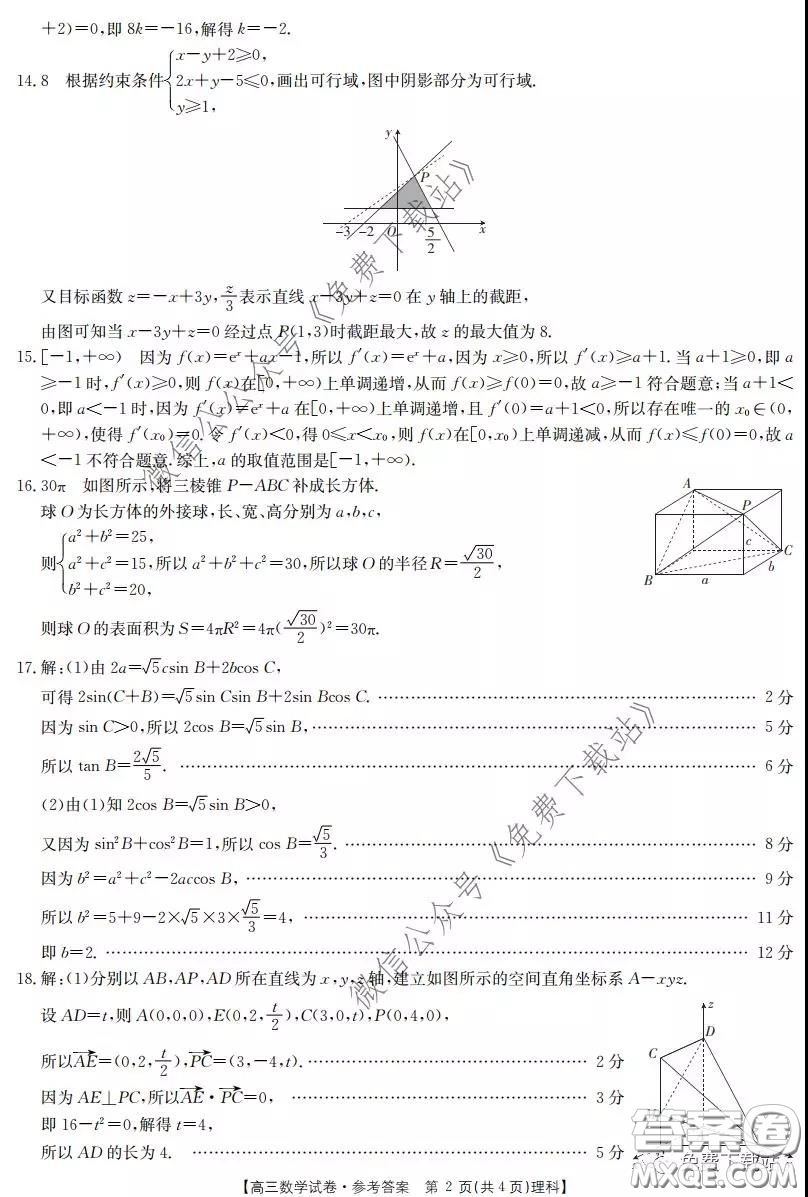 +2)=0,即 8k=-16,解得 k=-2.
14. 8 根据约束条件{x-y+2≥0, 2x+y-5≤0, y≥1, 画出可行域,图中阴影部分为可行域.
y
P
-3 -2 O 5/2 x
又目标函数 z=-x+3y, z/3 表示直线 x-3y+z=0 在 y 轴上的截距,
由图可知当 x-3y+z=0 经过点 P(1,3)时截距最大,故 z 的最大值为 8.
15. [-1,+∞) 因为 f(x)=eˣ+ax-1,所以 f′(x)=eˣ+a,因为 x≥0,所以 f′(x)≥a+1. 当 a+1≥0,即 a
≥-1 时,f′(x)≥0,则 f(x)在[0,+∞)上单调递增,从而 f(x)≥f(0)=0,故 a≥-1 符合题意;当 a+1<
0,即 a<-1 时,因为 f′(x)=eˣ+a 在[0,+∞)上单调递增,且 f′(0)=a+1<0,所以存在唯一的 x₀∈(0,
+∞),使得 f′(x₀)=0. 令 f′(x)<0,得 0≤x<x₀,则 f(x)在[0,x₀)上单调递减,从而 f(x)≤f(0)=0,故 a
<-1 不符合题意. 综上,a 的取值范围是[-1,+∞).
16. 30π 如图所示,将三棱锥 P-ABC 补成长方体.
球 O 为长方体的外接球,长、宽、高分别为 a,b,c,
则{a²+b²=25, a²+c²=15, b²+c²=20, 所以 a²+b²+c²=30,所以球 O 的半径 R=√30/2,
A
P
c
C
b
B
a
则球 O 的表面积为 S=4πR²=4π(√30/2)²=30π.
17. 解:(1)由 2a=√5csin B+2bcos C,
可得 2sin(C+B)=√5sin Csin B+2sin Bcos C. …… 2 分
因为 sin C>0,所以 2cos B=√5sin B, …… 5 分
所以 tan B=2√5/5. …… 6 分
(2)由(1)知 2cos B=√5sin B>0,
又因为 sin²B+cos²B=1,所以 cos B=√5/3. …… 8 分
因为 b²=a²+c²-2accos B, …… 9 分
所以 b²=5+9-2×√5×3×√5/3=4, …… 11 分
即 b=2. …… 12 分
18. 解:(1)分别以 AB,AP,AD 所在直线为 x,y,z 轴,建立如图所示的空间直角坐标系 A-xyz.
设 AD=t,则 A(0,0,0),E(0,2,t/2),C(3,0,t),P(0,4,0),
所以AE→=(0,2,t/2),PC→=(3,-4,t). …… 2 分
因为 AE⊥PC,所以AE→·PC→=0, …… 3 分
即 16-t²=0,解得 t=4,
所以 AD 的长为 4. …… 5 分
z
D
C
【高三数学试卷·参考答案 第 2 页(共 4 页)理科】
微信公众号《免费下载站》
微信公众号《免费下载站》
答案卷
免费下载站
MXQE.COM